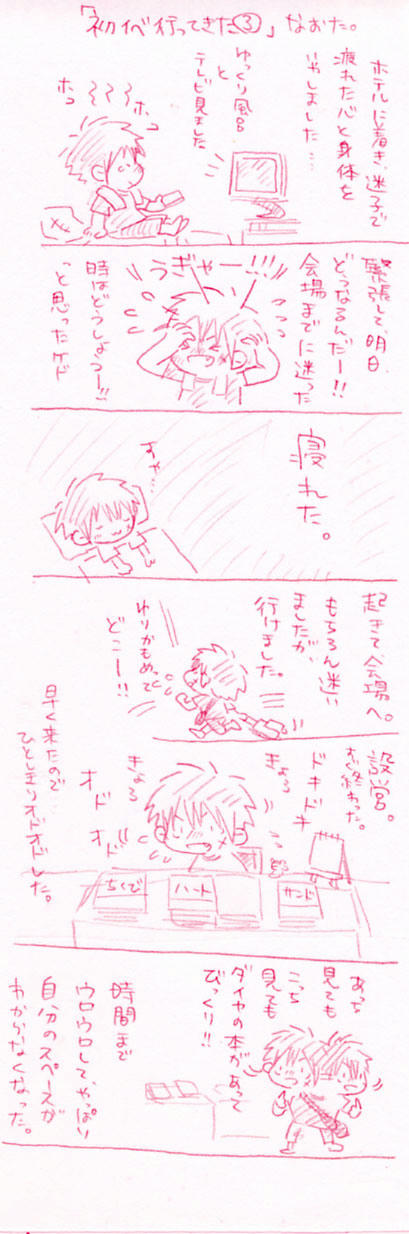 「初イベ行ってきた③」なおた。
ホテルに着き、迷子で
疲れた心と身体を
いやしました…
ゆっくり風呂
と
テレビ見ました
ホコ
ホコ
緊張して、明日、
どうなるんだー!!
会場までに迷った
時はどうしよう一!!
っと思ったケド
うぎゃー!!!
寝れた。
すや…
起きて、会場へ。
もちろん迷い
ましたが、
行けました。
ゆりかもめって
どこー!!
設営。
すぐ終わった。
ドキドキ
きょろ
きょろ
オド
オド
早く来たので
ひとしきりオドオドした。
ちくび
ハート
サンド
あっち
見ても
こっち
見ても
ダイヤの本があって
びっくり!!
時間まで
ウロウロして、やっぱり
自分のスペースが
わからなくなった。